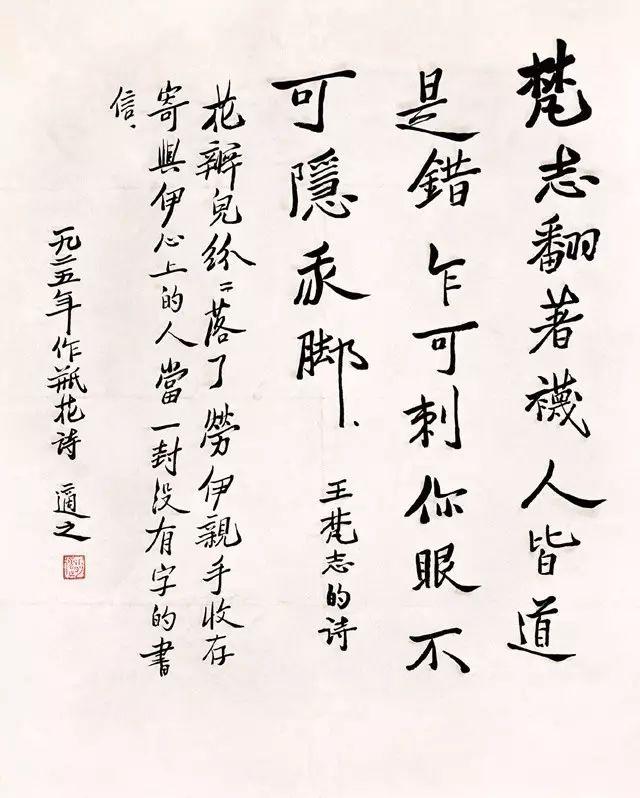 梵志翻著襪人皆道
是錯乍可刺你眼不
可隱我脚.
王梵志的诗
花瓣兒纷〃落了勞伊親手收存
寄與伊心上的人當一封没有字的書
信.
一九二五年作瓶花诗 適之